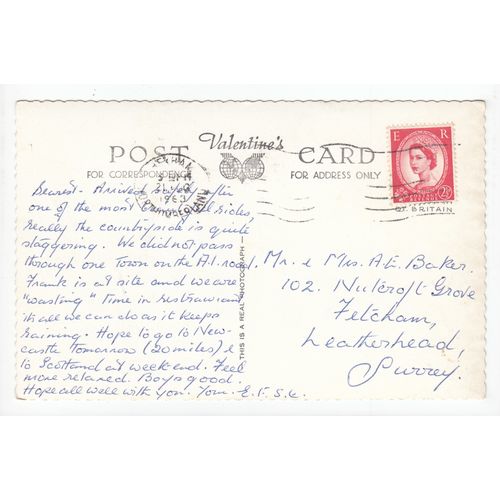 POST Valentine's CARD
FOR CORRESPONDENCE
FOR ADDRESS ONLY
E R
2½
GT BRITAIN
1963
NORTHUMBERLAND
THIS IS A REAL PHOTOGRAPH
Dearest. Arrived safely after
one of the most rides,
really the countryside is quite
staggering. We did not pass
through one Town on the A.1. road.
Frank is at site and we are
"wasting" Time in
it's all we can do as it keeps
raining. Hope to go to New-
castle Tomorrow (20 miles) &
to Scotland at week end. Feel
more relaxed. Boys good.
Hope all well with you. Tom. E.F.S.
Mr. & Mrs. A.E. Baker.
102. Nutcroft Grove
Fetcham,
Leatherhead,
Surrey.